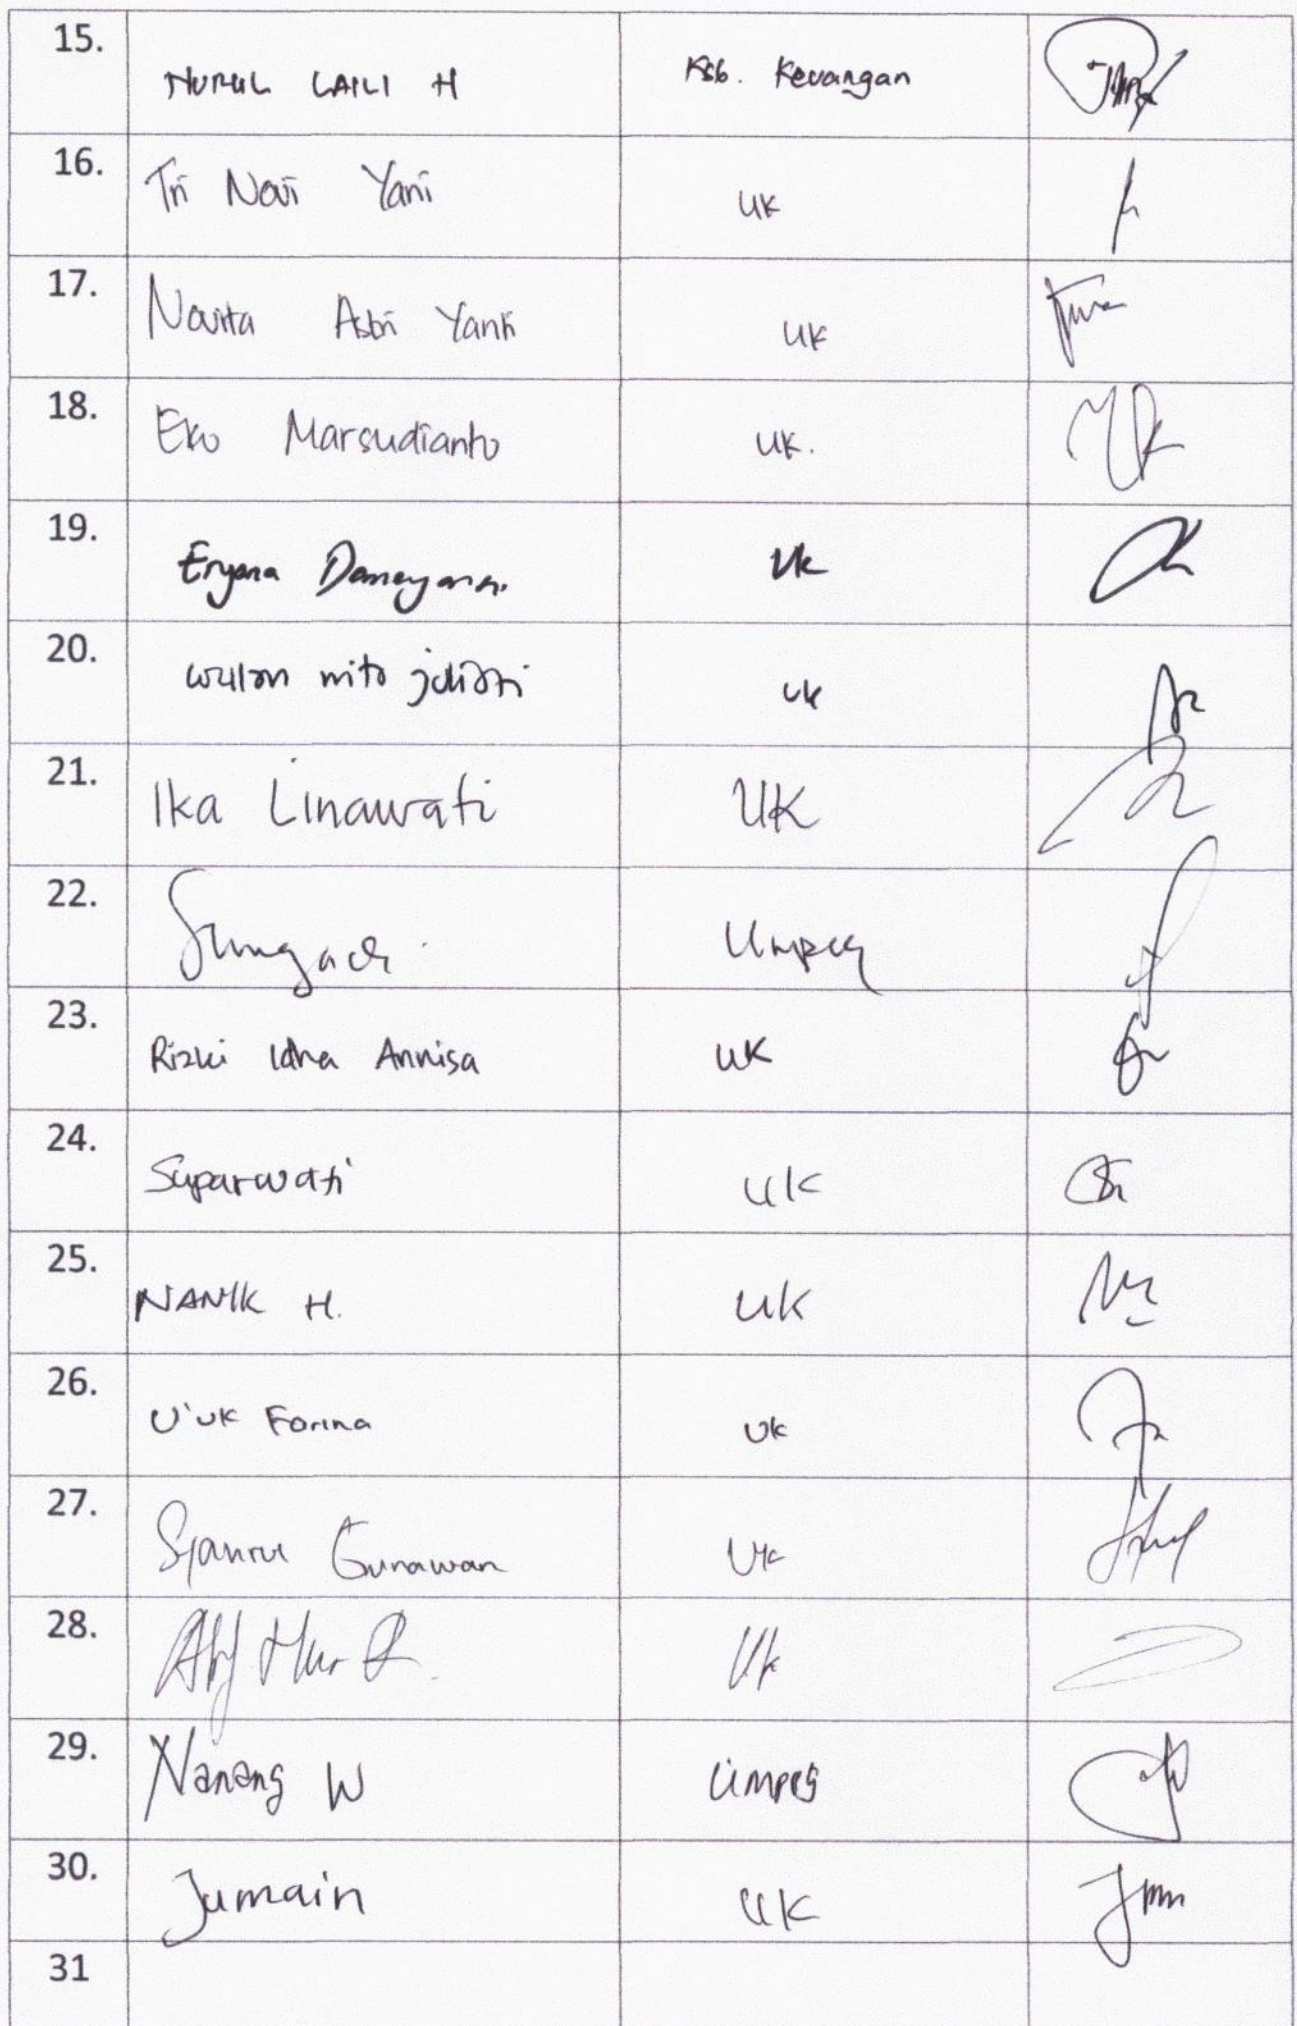 15. NURUL LAILI H Ksb. Keuangan
16. Tri Novi Yani UK
17. Novita Asbri Yanti UK
18. Eko Marsudianto UK.
19. Eryana Damayanti. UK
20. wulan mita juliasti uk
21. Ika Linawati UK
22. Umpeg
23. Rizki Idha Annisa UK
24. Suparwati UK
25. NANIK H. UK
26. U'uk Forina UK
27. Gunawan UK
28. Uk
29. Nanang W Umpeg
30. Jumain UK
31